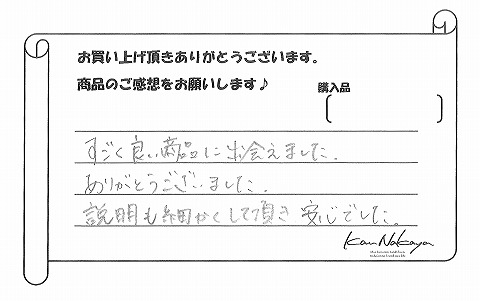 お買い上げ頂きありがとうございます。
商品のご感想をお願いします♪
購入品
すごく良い商品に出会えました。
ありがとうございました。
説明も細かくして頂き安心でした。
Kan Nakaya